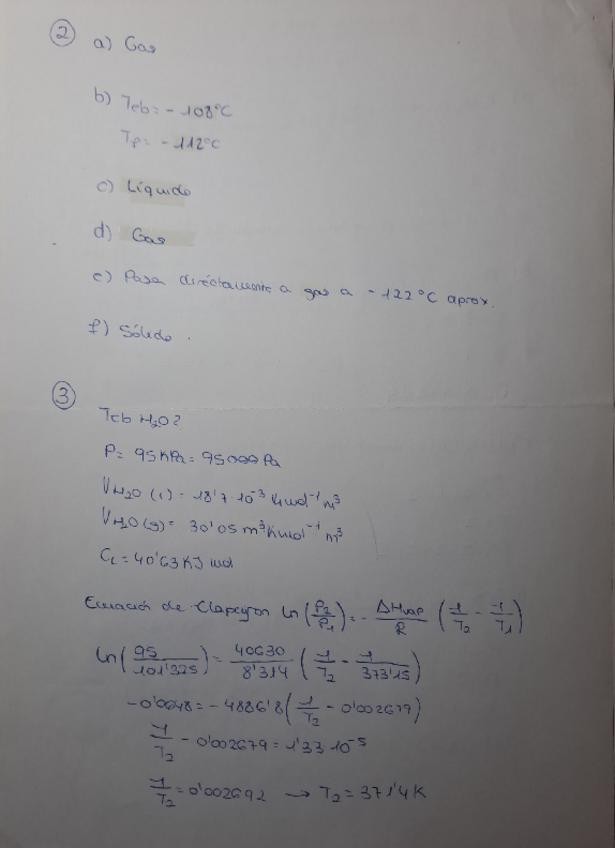 ② a) Gas
b) Teb = - 108°C
Tf = - 112°C
c) Líquido
d) Gas
e) Pasa diréctamente a gas a -122°C aprox.
f) Sólido.
③
Teb H₂O?
P = 95 KPa = 95000 Pa
V H₂O (l) = 18'7·10⁻³ Kmol⁻¹ m³
V H₂O (g) = 30'05 m³ Kmol⁻¹ m³
CL = 40'63 KJ mol
Ecuación de Clapeyron ln (P₂/P₁) = - ΔHvap/R (1/T₂ - 1/T₁)
ln (95/101'325) = 40630/8'314 (1/T₂ - 1/373'15)
-0'0648 = -4886'8 (1/T₂ - 0'002679)
1/T₂ - 0'002679 = 1'33·10⁻⁵
1/T₂ = 0'002692 → T₂ = 371'4 K